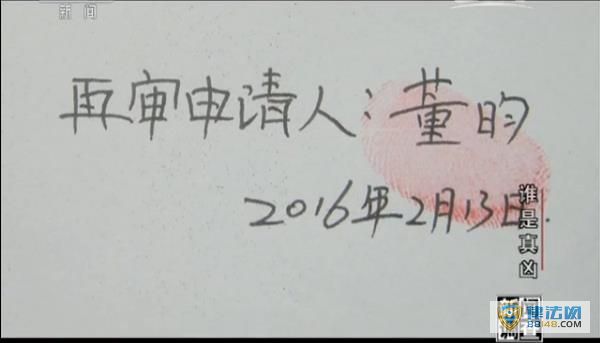 新闻
再审申请人：董昀
2016年2月13日.
谁是真凶
律法网
88148.com